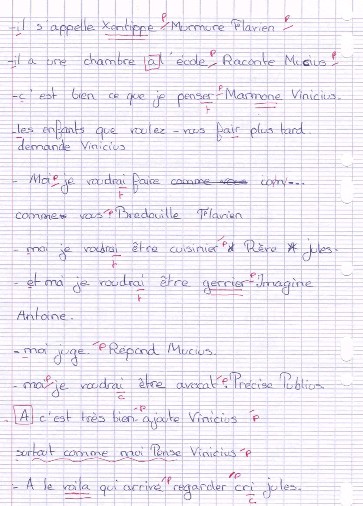 -il s'appelle Xantippe P Murmure Flavien P
-il a une chambre à l'école P Raconte Mucius P
-c'est bien ce que je penser P Marmone Vinicius.
-les enfants que voulez-vous fair plus tard.
demande Vinicius
- Moi P je voudrai faire comme vous com...
comme vous P Bredouille Flavien
- moi je voudrai être cuisinier P Rêve Jules.
- et moi je voudrai être gerrier P Imagine
Antoine.
- moi juge. P Repond Mucius.
- moi P je voudrai être avocat P Précise Publius
A c'est très bien P ajoute Vinicius P
surtout comme moi Pense Vinicius P
- A le voila qui arrive P regarder cri P jules.